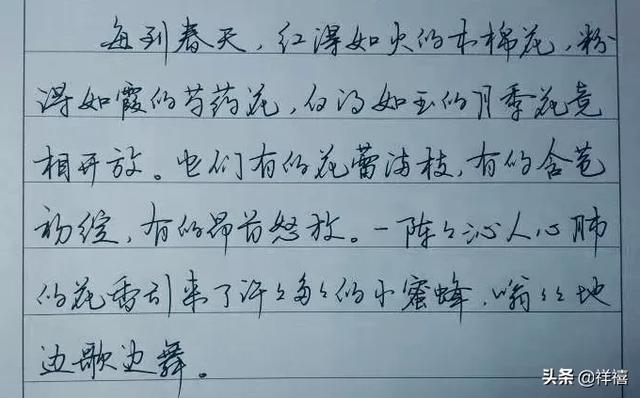 每到春天，红得如火的木棉花，粉
得如霞的芍药花，白得如玉的月季花竞
相开放。它们有的花蕾满枝，有的含苞
初绽，有的昂首怒放。一阵々沁人心肺
的花香引来了许々多々的小蜜蜂，嗡々地
边歌边舞。
头条@祥禧